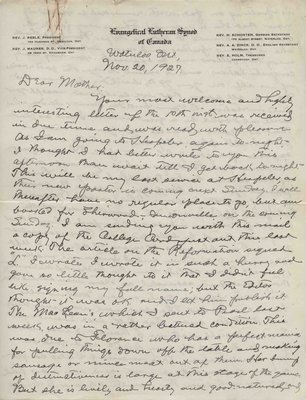 Evangelical Lutheran Synod
of Canada
REV. J. REBLE, PRESIDENT
REV. J. MAURER, D.D., VICE-PRESIDENT
REV. W. SCHUSTER, GERMAN SECRETARY
REV. A. A. ZINCK, D.D., ENGLISH SECRETARY
WATERLOO, ONT.
REV. E. HOLM, TREASURER
Waterloo, Ont.,
Nov. 20, 1927
Dear Mother,
Your most welcome and highly
interesting letter of the 10th inst. was received
in due time and was read with pleasure.
As I am going to Hespeler again to-night
I thought I had better write to you this
afternoon than wait till I get back to-night.
This will be my last service at Hespeler as
their new pastor is coming next Sunday. I will
thereafter have no regular place to go, but am
booked for Sherwood, on the coming
Sunday. I am sending you with this mail
a copy of the College Cord put out this last
week. The article on the Reformation signed
L. I wrote. I wrote it in such a hurry and
gave so little thought to it that I didn't feel
like signing my full name, but the Editor
thought it was O.K. and I let him publish it.
The MacLean's which I sent to Pearl last
week was in a rather battered condition. This
was due to Florence who has a perfect mania
for pulling things down off the table and making
sausage or mince meat out of them. Her bump
of destructiveness is large at this stage of the game.
But she is lively and hearty and good-natured